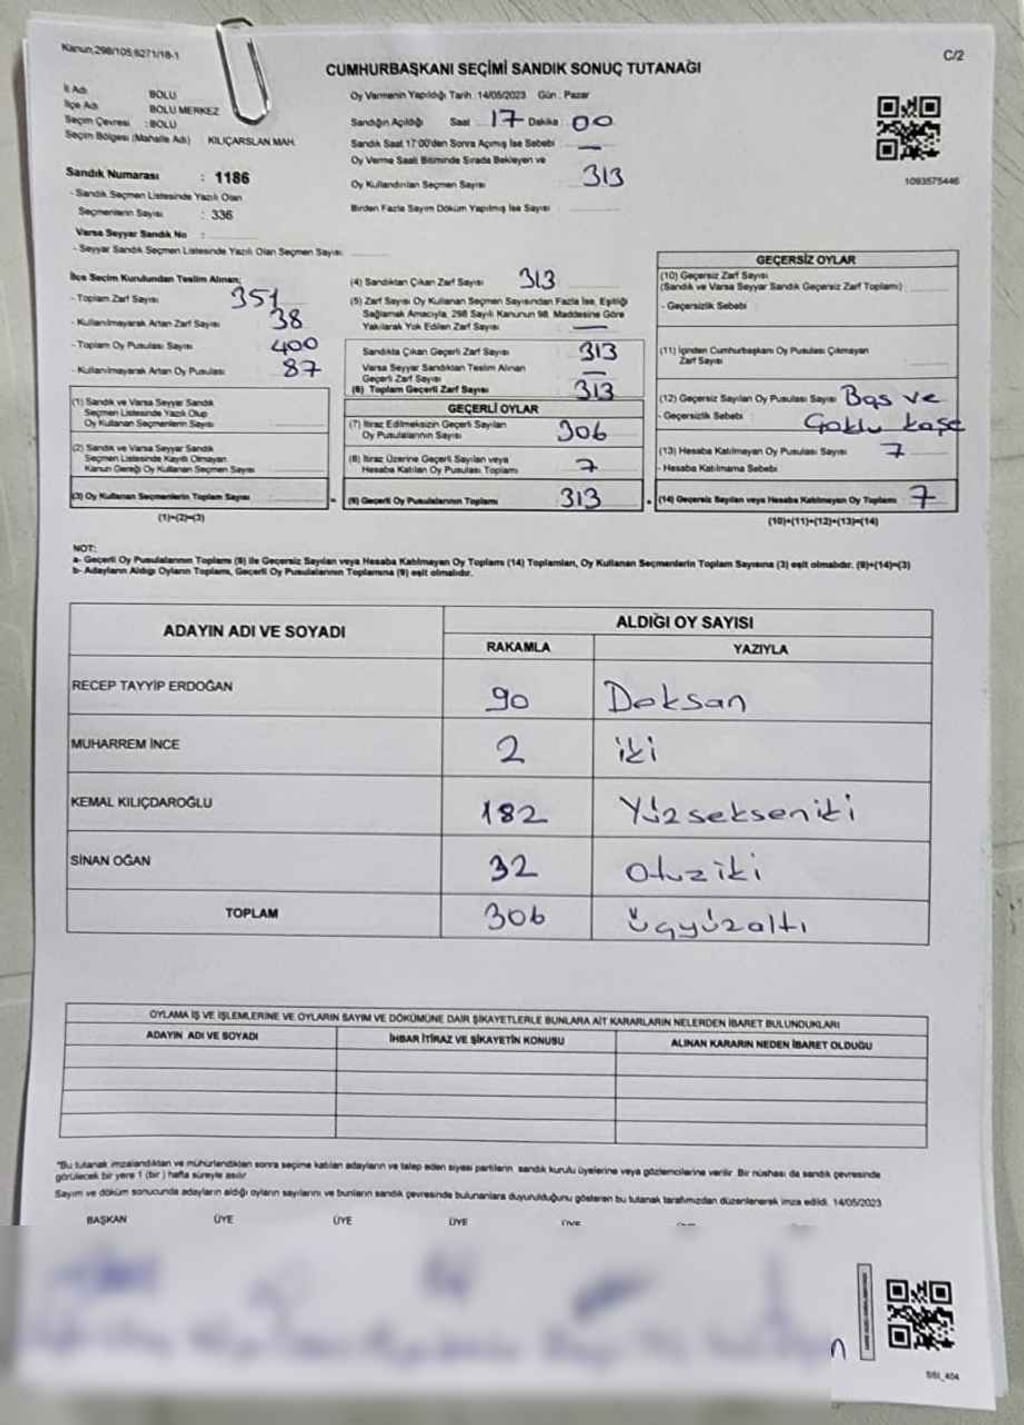 Kanun,298/105,6271/18-1
C/2
CUMHURBAŞKANI SEÇİMİ SANDIK SONUÇ TUTANAĞI
İl Adı BOLU
İlçe Adı BOLU MERKEZ
Seçim Çevresi : BOLU
Seçim Bölgesi (Mahalle Adı) KILIÇARSLAN MAH.
Sandık Numarası : 1186
- Sandık Seçmen Listesinde Yazılı Olan
Seçmenlerin Sayısı : 336
Varsa Seyyar Sandık No :
- Seyyar Sandık Seçmen Listesinde Yazılı Olan Seçmen Sayısı
Oy Vermenin Yapıldığı Tarih : 14/05/2023 Gün : Pazar
Sandığın Açıldığı Saat 17 Dakika 00
Sandık Saat 17:00'den Sonra Açmış İse Sebebi —
Oy Verme Saati Bitiminde Sırada Bekleyen ve
Oy Kullandırılan Seçmen Sayısı 313
Birden Fazla Sayım Döküm Yapılmış İse Sayısı
1093575446
İlçe Seçim Kurulundan Teslim Alınan;
- Toplam Zarf Sayısı 351
- Kullanılmayarak Artan Zarf Sayısı 38
- Toplam Oy Pusulası Sayısı 400
- Kullanılmayarak Artan Oy Pusulası 87
(1) Sandık ve Varsa Seyyar Sandık
Seçmen Listesinde Yazılı Olup
Oy Kullanan Seçmenlerin Sayısı
(2) Sandık ve Varsa Seyyar Sandık
Seçmen Listesinde Kayıtlı Olmayan
Kanun Gereği Oy Kullanan Seçmen Sayısı
(3) Oy Kullanan Seçmenlerin Toplam Sayısı
(1)+(2)=(3)
(4) Sandıktan Çıkan Zarf Sayısı 313
(5) Zarf Sayısı Oy Kullanan Seçmen Sayısından Fazla İse, Eşitliği
Sağlamak Amacıyla, 298 Sayılı Kanunun 98. Maddesine Göre
Yakılarak Yok Edilen Zarf Sayısı —
Sandıkta Çıkan Geçerli Zarf Sayısı 313
Varsa Seyyar Sandıktan Teslim Alınan
Geçerli Zarf Sayısı —
(6) Toplam Geçerli Zarf Sayısı 313
GEÇERLİ OYLAR
(7) İtiraz Edilmeksizin Geçerli Sayılan
Oy Pusulalarının Sayısı 306
(8) İtiraz Üzerine Geçerli Sayılan veya
Hesaba Katılan Oy Pusulası Toplamı 7
(9) Geçerli Oy Pusulalarının Toplamı 313
GEÇERSİZ OYLAR
(10) Geçersiz Zarf Sayısı
(Sandık ve Varsa Seyyar Sandık Geçersiz Zarf Toplamı)
- Geçersizlik Sebebi
(11) İçinden Cumhurbaşkanı Oy Pusulası Çıkmayan
Zarf Sayısı
(12) Geçersiz Sayılan Oy Pusulası Sayısı Boş ve
- Geçersizlik Sebebi Çoklu kaşe
(13) Hesaba Katılmayan Oy Pusulası Sayısı 7
- Hesaba Katılmama Sebebi
(14) Geçersiz Sayılan veya Hesaba Katılmayan Oy Toplamı 7
(10)+(11)+(12)+(13)=(14)
NOT:
a- Geçerli Oy Pusulalarının Toplamı (9) ile Geçersiz Sayılan veya Hesaba Katılmayan Oy Toplamı (14) Toplamları, Oy Kullanan Seçmenlerin Toplam Sayısına (3) eşit olmalıdır. (9)+(14)=(3)
b- Adayların Aldığı Oyların Toplamı, Geçerli Oy Pusulalarının Toplamına (9) eşit olmalıdır.
ADAYIN ADI VE SOYADI
ALDIĞI OY SAYISI
RAKAMLA YAZIYLA
RECEP TAYYİP ERDOĞAN 90 Doksan
MUHARREM İNCE 2 iki
KEMAL KILIÇDAROĞLU 182 Yüzsekseniki
SİNAN OĞAN 32 otuziki
TOPLAM 306 üçyüzaltı
OYLAMA İŞ VE İŞLEMLERİNE VE OYLARIN SAYIM VE DÖKÜMÜNE DAİR ŞİKAYETLERLE BUNLARA AİT KARARLARIN NELERDEN İBARET BULUNDUKLARI
ADAYIN ADI VE SOYADI İHBAR İTİRAZ VE ŞİKAYETİN KONUSU ALINAN KARARIN NEDEN İBARET OLDUĞU
*Bu tutanak imzalandıktan ve mühürlendikten sonra seçime katılan adayların ve talep eden siyasi partilerin sandık kurulu üyelerine veya gözlemcilerine verilir. Bir nüshası da sandık çevresinde
görülecek bir yere 1 (bir) hafta süreyle asılır
Sayım ve döküm sonucunda adayların aldığı oyların sayılarını ve bunların sandık çevresinde bulunanlara duyurulduğunu gösteren bu tutanak tarafımızdan düzenlenerek imza edildi. 14/05/2023
BAŞKAN ÜYE ÜYE ÜYE ÜYE
SSI_404